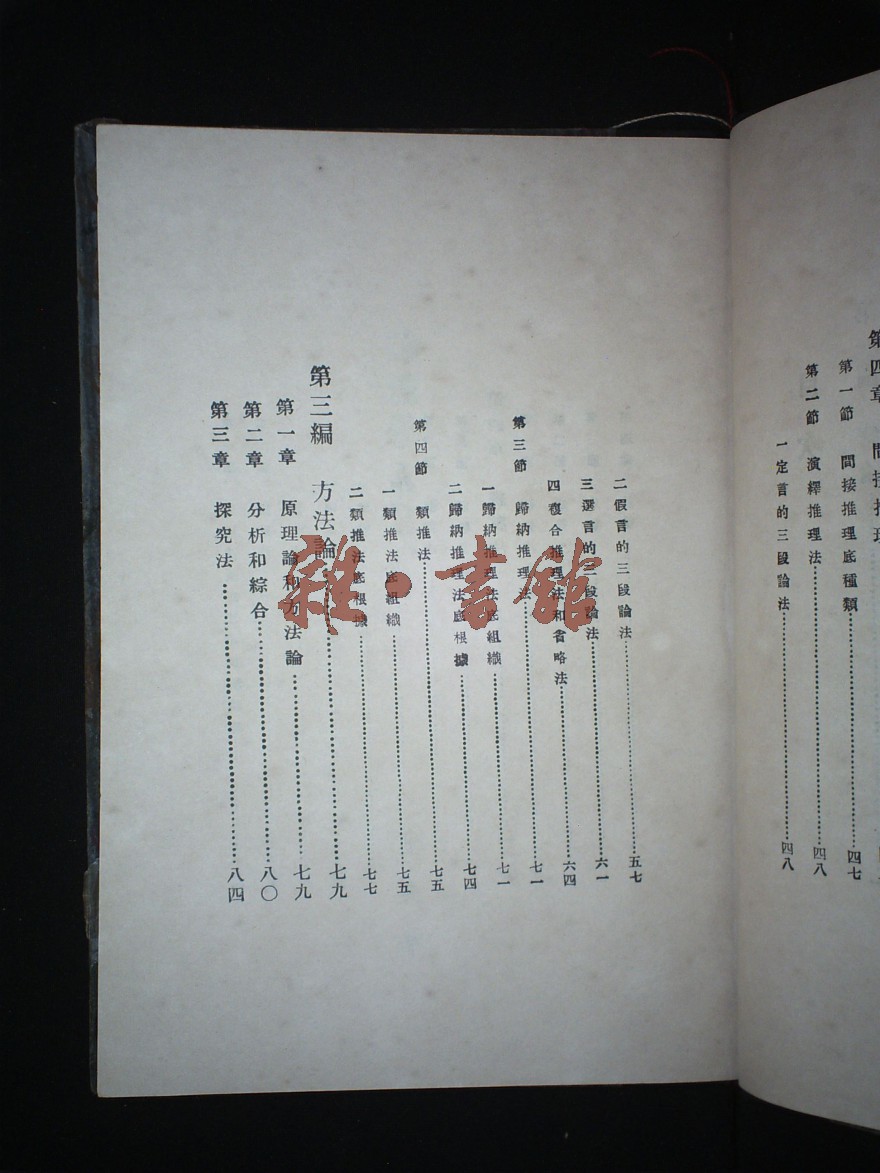 第四章 間接推理
第一節 間接推理底種類……四七
第二節 演繹推理法……四八
一定言的三段論法……四八
二假言的三段論法……五七
三選言的三段論法……六一
四複合推理法和省略法……六四
第三節 歸納推理法……七一
一歸納推理法底組織……七一
二歸納推理法底根據……七四
第四節 類推法……七五
一類推法底組織……七五
二類推法底根據……七七
第三編 方法論……七九
第一章 原理論和方法論……七九
第二章 分析和綜合……八〇
第三章 探究法……八四
雜·書館